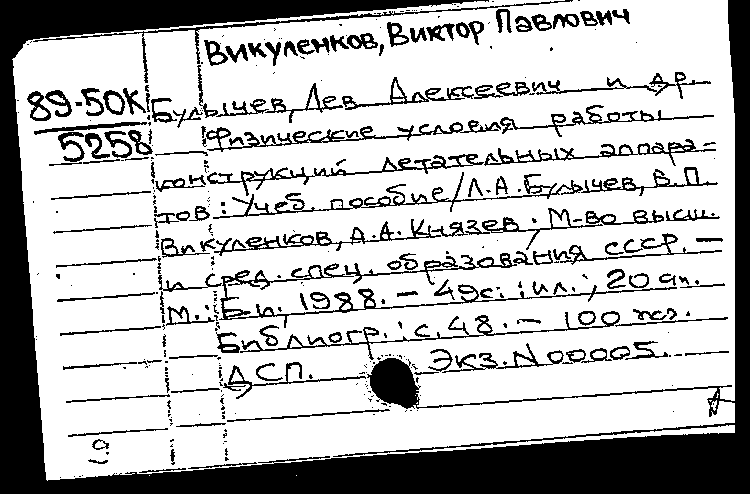 Викуленков, Виктор Павлович
89-50К
5258
Булычев, Лев Алексеевич и др.
Физические условия работы
конструкций летательных аппара-
тов : Учеб. пособие / Л.А. Булычев, В.П.
Викуленков, А.А. Князев ; М-во высш.
и сред. спец. образования СССР. —
М. : Б.и., 1988. — 49с. : ил. ; 20 см.
Библиогр. : с. 48. — 100 экз.
ДСП. Экз. N 00005.